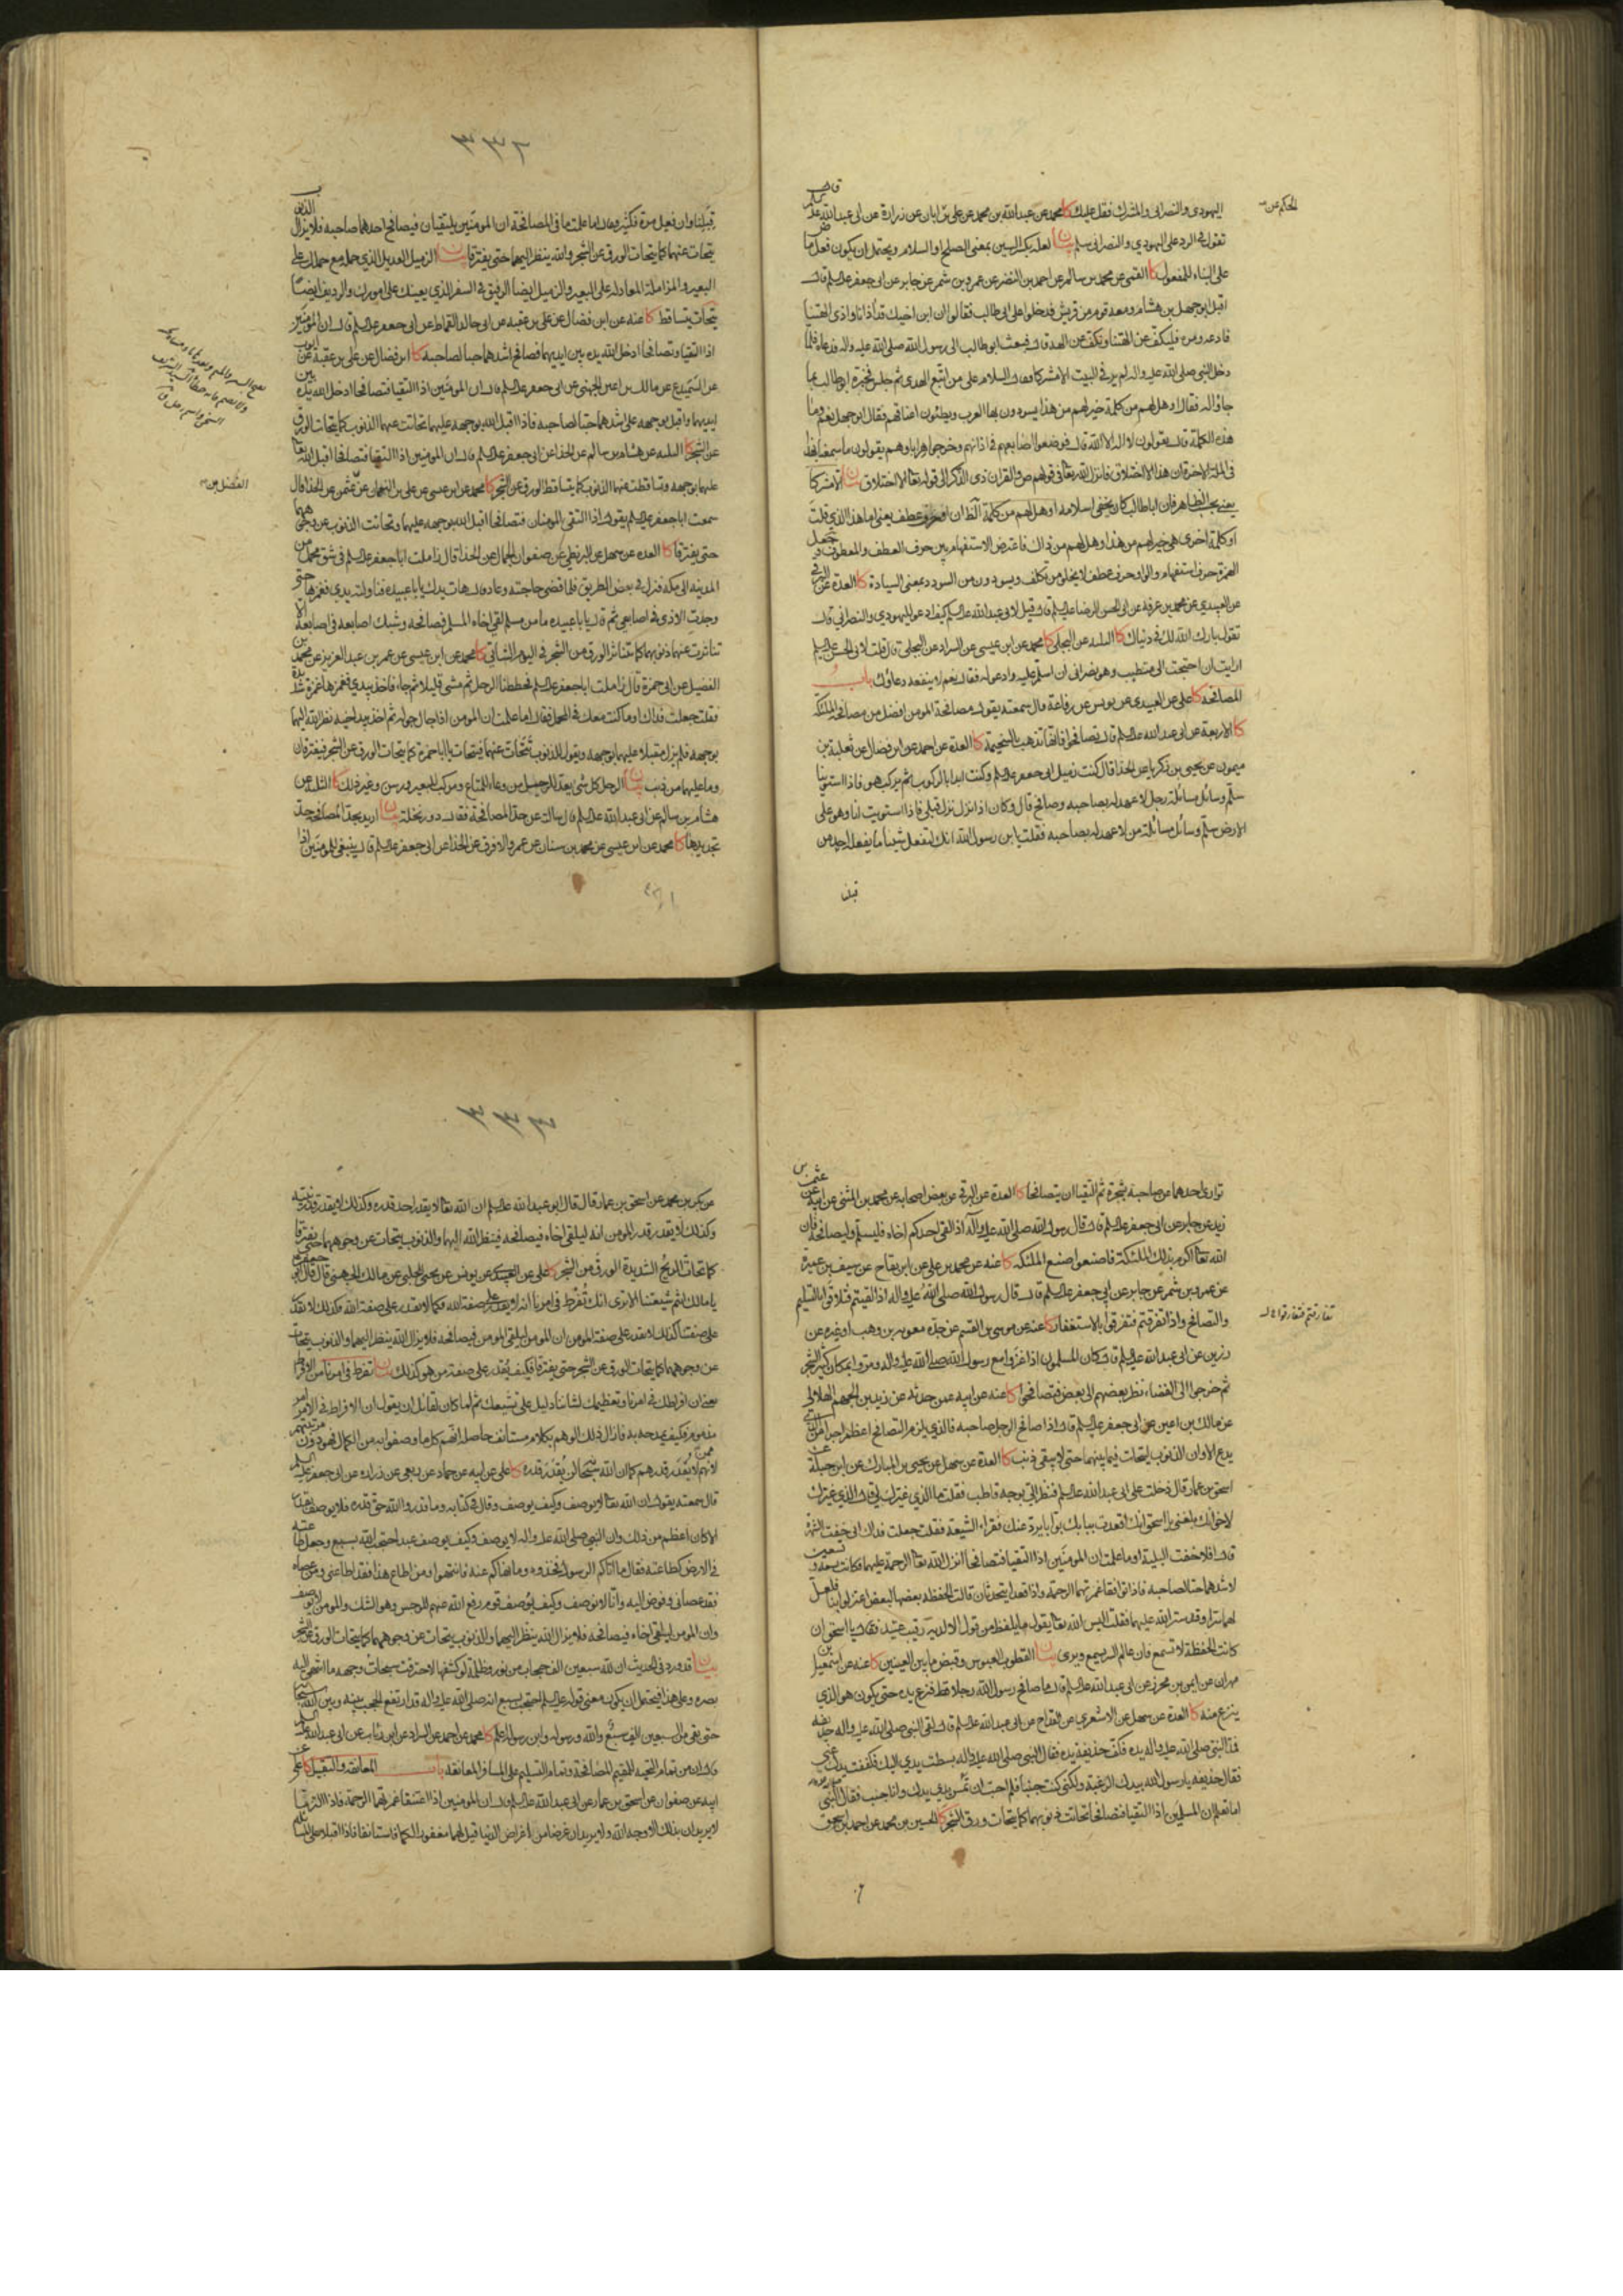 اليهودى والنصرانى والمشرك فقل عليك كا محمد عن عبدالله بن محمد عن على بن ابان عن زرارة عن ابى عبدالله
تقول فى الرد على اليهودي والنصرانى سلم بيان لعله بكسر السين بمعنى الصلح او السلام ويحتمل ان يكون فعل ما
على البناء للمفعول كا القمى عن محمد بن سالم عن احمد بن النضر عن عمرو بن شمر عن جابر عن ابى جعفر قال
اقبل ابوجهل بن هشام ومعه قوم من قريش فدخلوا على ابى طالب فقالوا ان ابن اخيك قد اذانا واذى الهتنا
فادعه ومره فليكف عن الهتنا ونكف عن الهه قال فبعث ابوطالب الى رسول الله صلى الله عليه واله فدعاه فلما
دخل النبى صلى الله عليه واله لم ير فى البيت الا مشركا فقال السلام على من اتبع الهدى ثم جلس فخبره ابوطالب بما
جاؤاله فقال او هل لهم من كلمة خير لهم من هذا يسودون بها العرب ويطئون اعناقهم فقال ابوجهل نعم وما
هذه الكلمة قال تقولون لا اله الا الله قال فوضعوا اصابعهم فى اذانهم وخرجوا هرابا وهم يقولون ما سمعنا بهذا
فى الملة الاخرة ان هذا الا اختلاق فانزل الله تعالى فى قولهم ص والقران ذى الذكر الى قوله تعالى الا اختلاق بيان الا مشركا
يعنى بحسب الظاهر فان اباطالب كان يخفى اسلامه او هل لهم من كلمة
او كلمة اخرى هى خير لهم من هذا وهل لهم من ذاك فاعترض الاستفهام بين حرف العطف والمعطوف
الهمزة حرف استفهام والواو حرف عطف لا يخلو من تكلف ويسودون من السودد بمعنى السيادة كا العدة عن البرقى
عن العبيدي عن محمد بن عرفة عن ابى الحسن الرضا قال قيل لابى عبدالله كيف ادعو لليهودي والنصرانى قال
تقول بارك الله لك فى دنياك كا الثلثة عن البجلى كا محمد عن ابن عيسى عن السراد عن البجلى قال قلت لابى الحسن
ارايت ان احتجت الى متطبب وهو نصرانى ان اسلم عليه وادعو له فقال نعم لا ينفعه دعاؤك باب
المصافحة كا على عن العبيدي عن يونس عن رفاعة قال سمعته يقول مصافحة المومن افضل من مصافحة الملئكة
كا الاربعة عن ابى عبد الله قال تصافحوا فانها تذهب بالسخيمة كا العدة عن احمد عن ابن فضال عن ثعلبة بن
ميمون عن يحيى بن زكريا عن الحذا قال كنت زميل ابى جعفر وكنت ابدا بالركوب ثم يركب هو فاذا استوينا
سلم وسائل مسائلة رجل لا عهد له بصاحبه وصافح قال وكان اذا نزل نزل قبلى فاذا استويت انا وهو على
الارض سلم وسائل مسائلة من لا عهد له بصاحبه فقلت يا بن رسول الله انك لتفعل شيئا ما يفعله احد من
٣٣٢
قبلنا وان فعل مرة فكثير فقال اما علمت ما فى المصافحة ان المومنين يلتقيان فيصافح احدهما صاحبه فلا يزال الذنوب
يتحات عنهما كما يتحات الورق عن الشجر والله ينظر اليهما حتى يفترقا بيان الزميل العديل الذي حمله مع حملك على
البعير والمزاملة المعادلة على البعير والزميل ايضا الرفيق فى السفر الذي يعينك على امورك والرديف ايضا
يتحات يتساقط كا عنه عن ابن فضال عن على بن عقبه عن ابى خالد القماط عن ابى جعفر قال ان المؤمنين
اذا التقيا وتصافحا ادخل الله يده بين ايديهما فصافح اشدهما حبا لصاحبه كا ابن فضال عن على بن عقبة عن ايوب
عن السميدع عن مالك بن اعين الجهنى عن ابى جعفر قال ان المومنين اذا التقيا فتصافحا ادخل الله يده بين
ايديهما واقبل بوجهه على اشدهما حبا لصاحبه فاذا اقبل الله بوجهه عليهما تحاتت عنهما الذنوب كما يتحات الورق
عن الشجر كا الثلثه عن هشام بن سالم عن الحذا عن ابى جعفر قال ان المومنين اذا التقيا فتصافحا اقبل الله تعالى
عليهما بوجهه وتساقطت عنهما الذنوب كما يتساقط الورق عن الشجر كا محمد عن ابن عيسى عن على بن النعمان عن عثمن عن الحذا قال
سمعت اباجعفر يقول اذا التقى المومنان فتصافحا اقبل الله بوجهه عليهما وتحاتت الذنوب عن وجوههما
حتى يفترقا كا العدة عن سهل عن البزنطى عن صفوان الجمال عن الحذا قال زاملت اباجعفر فى شق محمل من
المدينه الى مكه فنزل فى بعض الطريق فلما قضى حاجته وعاد قال هات يدك يا باعبيده فناولته يدي فغمزها حتى
وجدت الاذى فى اصابعى ثم قال يا باعبيده ما من مسلم لقى اخاه المسلم فصافحه وشبك اصابعه فى اصابعه الا
تناثرت عنهما ذنوبهما كما يتناثر الورق من الشجر فى اليوم الشاتى كا محمد عن ابن عيسى عن عمر بن عبد العزيز عن محمد بن
الفضيل عن ابى حمزة قال زاملت اباجعفر فحططنا الرحل ثم مشى قليلا ثم جاء فاخذ بيدي فغمزها غمزة شديدة
فقلت جعلت فداك اوما كنت معك فى المحمل فقال اما علمت ان المومن اذا جال جولة ثم اخذ بيد اخيه نظر الله اليهما
بوجهه فلم يزل مقبلا عليهما بوجهه ويقول للذنوب تتحات عنهما فيتحات يا باحمزة كما يتحات الورق عن الشجر فيفترقان
وما عليهما من ذنب بيان الرحل كل شئ يعد للرحيل من وعاء للمتاع ومركب للبعير ورسن وغير ذلك كا الثلثة عن
هشام بن سالم عن ابى عبدالله قال سالته عن حد المصافحة فقال دور نخلة بيان اريد بحد المصافحة حد
تجديدها كا محمد عن ابن عيسى عن محمد بن سنان عن عمرو الافرق عن الحذا عن ابى جعفر قال ينبغى للمومنين اذا
توارى احدهما عن صاحبه بشجرة ثم التقيا ان يتصافحا كا العدة عن البرقى عن بعض اصحابه عن محمد بن المثنى عن ابيه عن عثمن بن
زيد عن جابر عن ابى جعفر قال قال رسول الله صلى الله عليه وآله اذا لقى احدكم اخاه فليسلم وليصافحه فان
الله تعالى اكرم بذلك الملئكة فاصنعوا صنع الملئكه كا عنه عن محمد بن على عن ابن بقاح عن سيف بن عميرة
عن عمرو بن شمر عن جابر عن ابى جعفر قال قال رسول الله صلى الله عليه واله اذا لقيتم فتلاقوا بالتسليم
والتصافح واذا تفرقتم فتفرقوا بالاستغفار كا عنه عن موسى بن القسم عن جده معويه بن وهب او غيره عن
رزين عن ابى عبدالله قال كان المسلمون اذا غزوا مع رسول الله صلى الله عليه واله ومروا بمكان كثير الشجر
ثم خرجوا الى الفضاء نظر بعضهم الى بعض فتصافحوا كا عنه عن ابيه عمن حدثه عن زيد بن الجهم الهلالى
عن مالك بن اعين عن ابى جعفر قال اذا صافح الرجل صاحبه فالذي يلزم التصافح اعظم اجرا من الذي
يدع الا وان الذنوب ليتحات فيما بينهما حتى لا يبقى ذنب كا العدة عن سهل عن يحيى بن المبارك عن ابن جبلة عن
اسحق بن عمار قال دخلت على ابى عبدالله فنظر الى بوجه قاطب فقلت ما الذي غيرك لى قال الذي غيرك
لاخوانك بلغنى يا اسحق انك اقعدت ببابك بوابا يرد عنك فقراء الشيعة فقلت جعلت فداك انى خفت الشهرة
قال افلا خفت البلية اوما علمت ان المومنين اذا التقيا فتصافحا انزل الله تعالى الرحمة عليهما فكانت تسعة وتسعين
لاشدهما حبا لصاحبه فاذا توافقا غمرتهما الرحمة واذا قعدا يتحدثان قالت الحفظه بعضها لبعض اعتزلوا بنا فلعل
لهما سرا وقد ستر الله عليهما فقلت اليس الله تعالى يقول ما يلفظ من قول الا لديه رقيب عتيد فقال يا اسحق ان
كانت الحفظة لا تسمع فان عالم السر يسمع ويرى بيان القطوب العبوس وقبض ما بين العينين كا عنه عن اسمعيل بن
مهران عن ايمن بن محرز عن ابى عبدالله قال ما صافح رسول الله رجلا قط فنزع يده حتى يكون هو الذي
ينزع منه كا العدة عن سهل عن الاشعري عن القداح عن ابى عبدالله قال لقى النبى صلى الله عليه واله حذيفه
فمد النبى صلى الله عليه واله يده فكف حذيفة يده فقال النبى صلى الله عليه واله بسطت يدي اليك فكففت يدك عنى
فقال حذيفه يا رسول الله بيدك الرغبة ولكنى كنت جنبا فلم احب ان تمس يدي يدك وانا جنب فقال النبى
اما تعلم ان المسلمين اذا التقيا فتصافحا تحاتت ذنوبهما كما يتحات ورق الشجر كا الحسين بن محمد عن احمد بن اسحق
٣٣٣
عن بكر بن محمد عن اسحق بن عمار قال قال ابو عبدالله ان الله تعالى لا يقدر احد قدره وكذلك لا يقدر قدر نبيه
وكذلك لا يقدر قدر المومن انه ليلقى اخاه فيصافحه فينظر الله اليهما والذنوب يتحات عن وجوههما حتى يفترقا
كما تحات الريح الشديدة الورق من الشجر كا على عن العبيدي عن يونس عن يحيى الحلبى عن مالك الجهنى قال قال ابو جعفر
يا مالك انتم شيعتنا الا ترى انك تفرط فى امرنا انه لا يقدر على صفة الله فكما لا يقدر على صفة الله وكذلك لا يقدر
على صفتنا وكذلك لا يقدر على صفة المومن ان المومن ليلقى المومن فيصافحه فلا يزال الله ينظر اليهما والذنوب يتحات
عن وجوههما كما يتحات الورق عن الشجر حتى يفترقا فكيف يقدر على صفة من هو كذلك بيان تفرط فى امرنا من الافراط
يعنى ان افراطك فى امرنا وتعظيمك لشاننا دليل على تشيعك ثم لما كان لقائل ان يقول ان الافراط فى الامر امر
مذموم فكيف يمدحه به فازال ذلك الوهم بكلام مستانف حاصله انهم كلما وصفوا به من الكمال فهو دون مرتبتهم
لانهم لا يقدر قدرهم كما ان الله سبحانه لن يقدر قدره كا على عن ابيه عن حماد عن ربعى عن زراره عن ابى جعفر
قال سمعته يقول ان الله تعالى لا يوصف وكيف يوصف وقال فى كتابه وما قدروا الله حق قدره فلا يوصف بقدر
الا كان اعظم من ذلك وان النبى صلى الله عليه واله لا يوصف وكيف يوصف عبد احتجب الله بسبع وجعل طاعته
فى الارض كطاعته فقال ما اتاكم الرسول فخذوه وما نهاكم عنه فانتهوا ومن اطاع هذا فقد اطاعنى ومن عصاه
فقد عصانى وفوض اليه وانا لا نوصف وكيف يوصف قوم رفع الله عنهم الرجس وهو الشك والمومن لا يوصف
وان المومن ليلقى اخاه فيصافحه فلا يزال الله ينظر اليهما والذنوب يتحات عن وجوههما كما يتحات الورق عن الشجر
بيان قد ورد فى الحديث ان لله سبعين الف حجاب من نور وظلمة لو كشفها لاحترقت سبحات وجهه ما انتهى اليه
بصره وعلى هذا فيحتمل ان يكون معنى قوله احتجب بسبع انه صلى الله عليه واله قد ارتفع الحجب بينه وبين الله سبحانه
حتى بقى من السبعين الف سبع والله ورسوله وابن رسوله اعلم كا محمد عن احمد عن السراد عن ابن رئاب عن ابى عبدالله
قال ان من تمام التحيه للمقيم المصافحة وتمام التسليم على المسافر المعانقة باب المعانقه والتقبيل كا على عن
ابيه عن صفوان عن اسحق بن عمار عن ابى عبدالله قال ان المومنين اذا اعتنقا غمرتهما الرحمة فاذا التزما
لا يريدان بذلك الا وجه الله ولا يريدان غرضا من اغراض الدنيا قيل لهما مغفور لكما فاستانفا فاذا اقبلا على المسائلة